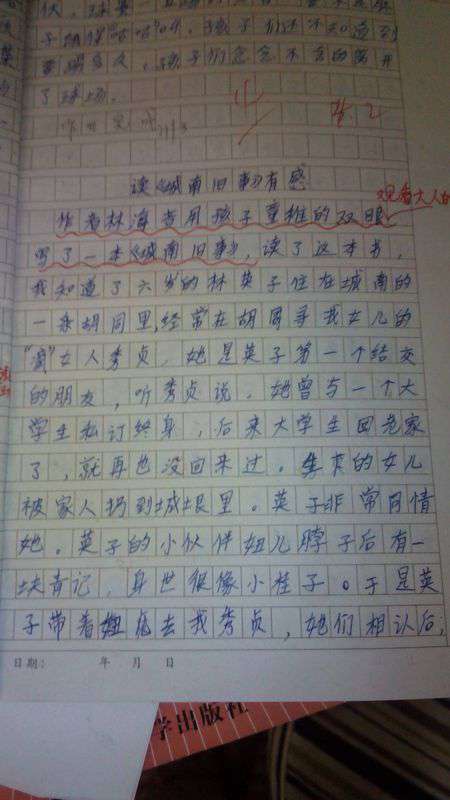 孩子们还不知道到
要踢多久，孩子们念念不舍的离开
了球场。
读《城南旧事》有感
观看大人的
作者林海音用孩子童稚的双眼
写了一本《城南旧事》，读了这本书，
我知道了六岁的林英子住在城南的
一条胡同里，经常在胡同寻找女儿的
“疯”女人秀贞，她是英子第一个结交
的朋友，听秀贞说，她曾与一个大
学生私订终身，后来大学生回老家
了，就再也没回来过。的女儿
被家人扔到城根里。英子非常同情
她。英子的小伙伴妞儿脖子后有一
块青记，身世很像小桂子。于是英
子带着妞儿去找秀贞，她们相认后，
日期： 年 月 日
学出版社